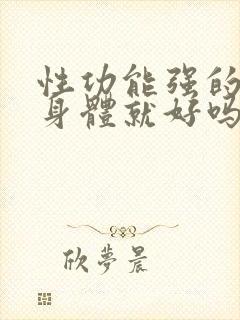 性功能强的
身體就好吗
欣夢晨